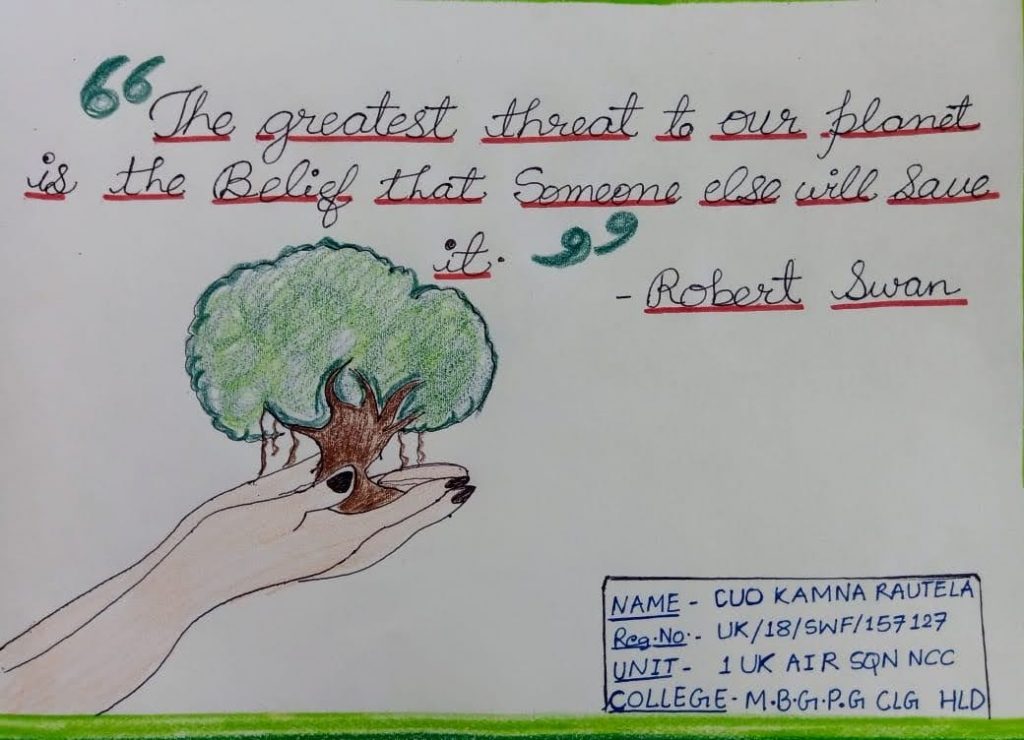 “The greatest threat to our planet
is the Belief that Someone else will Save
it.”
- Robert Swan
NAME - CUO KAMNA RAUTELA
Reg.No.- UK/18/SWF/157127
UNIT - 1 UK AIR SQN NCC
COLLEGE - M.B.G.P.G CLG HLD